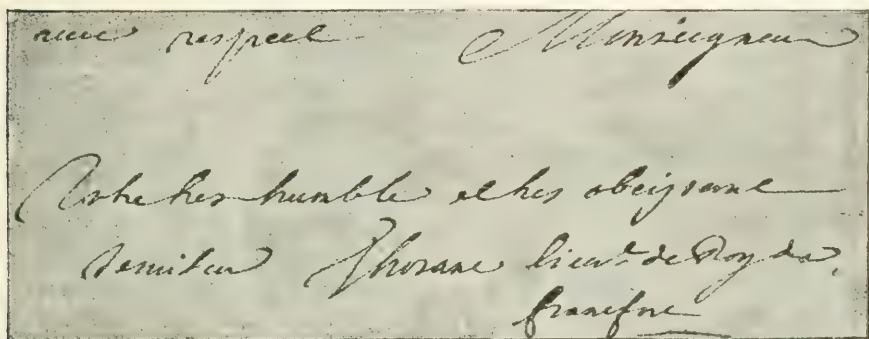 avec respect Monseigneur
Votre tres humble et tres obeissant
serviteur Thorane lieut. de Roy de
francfort